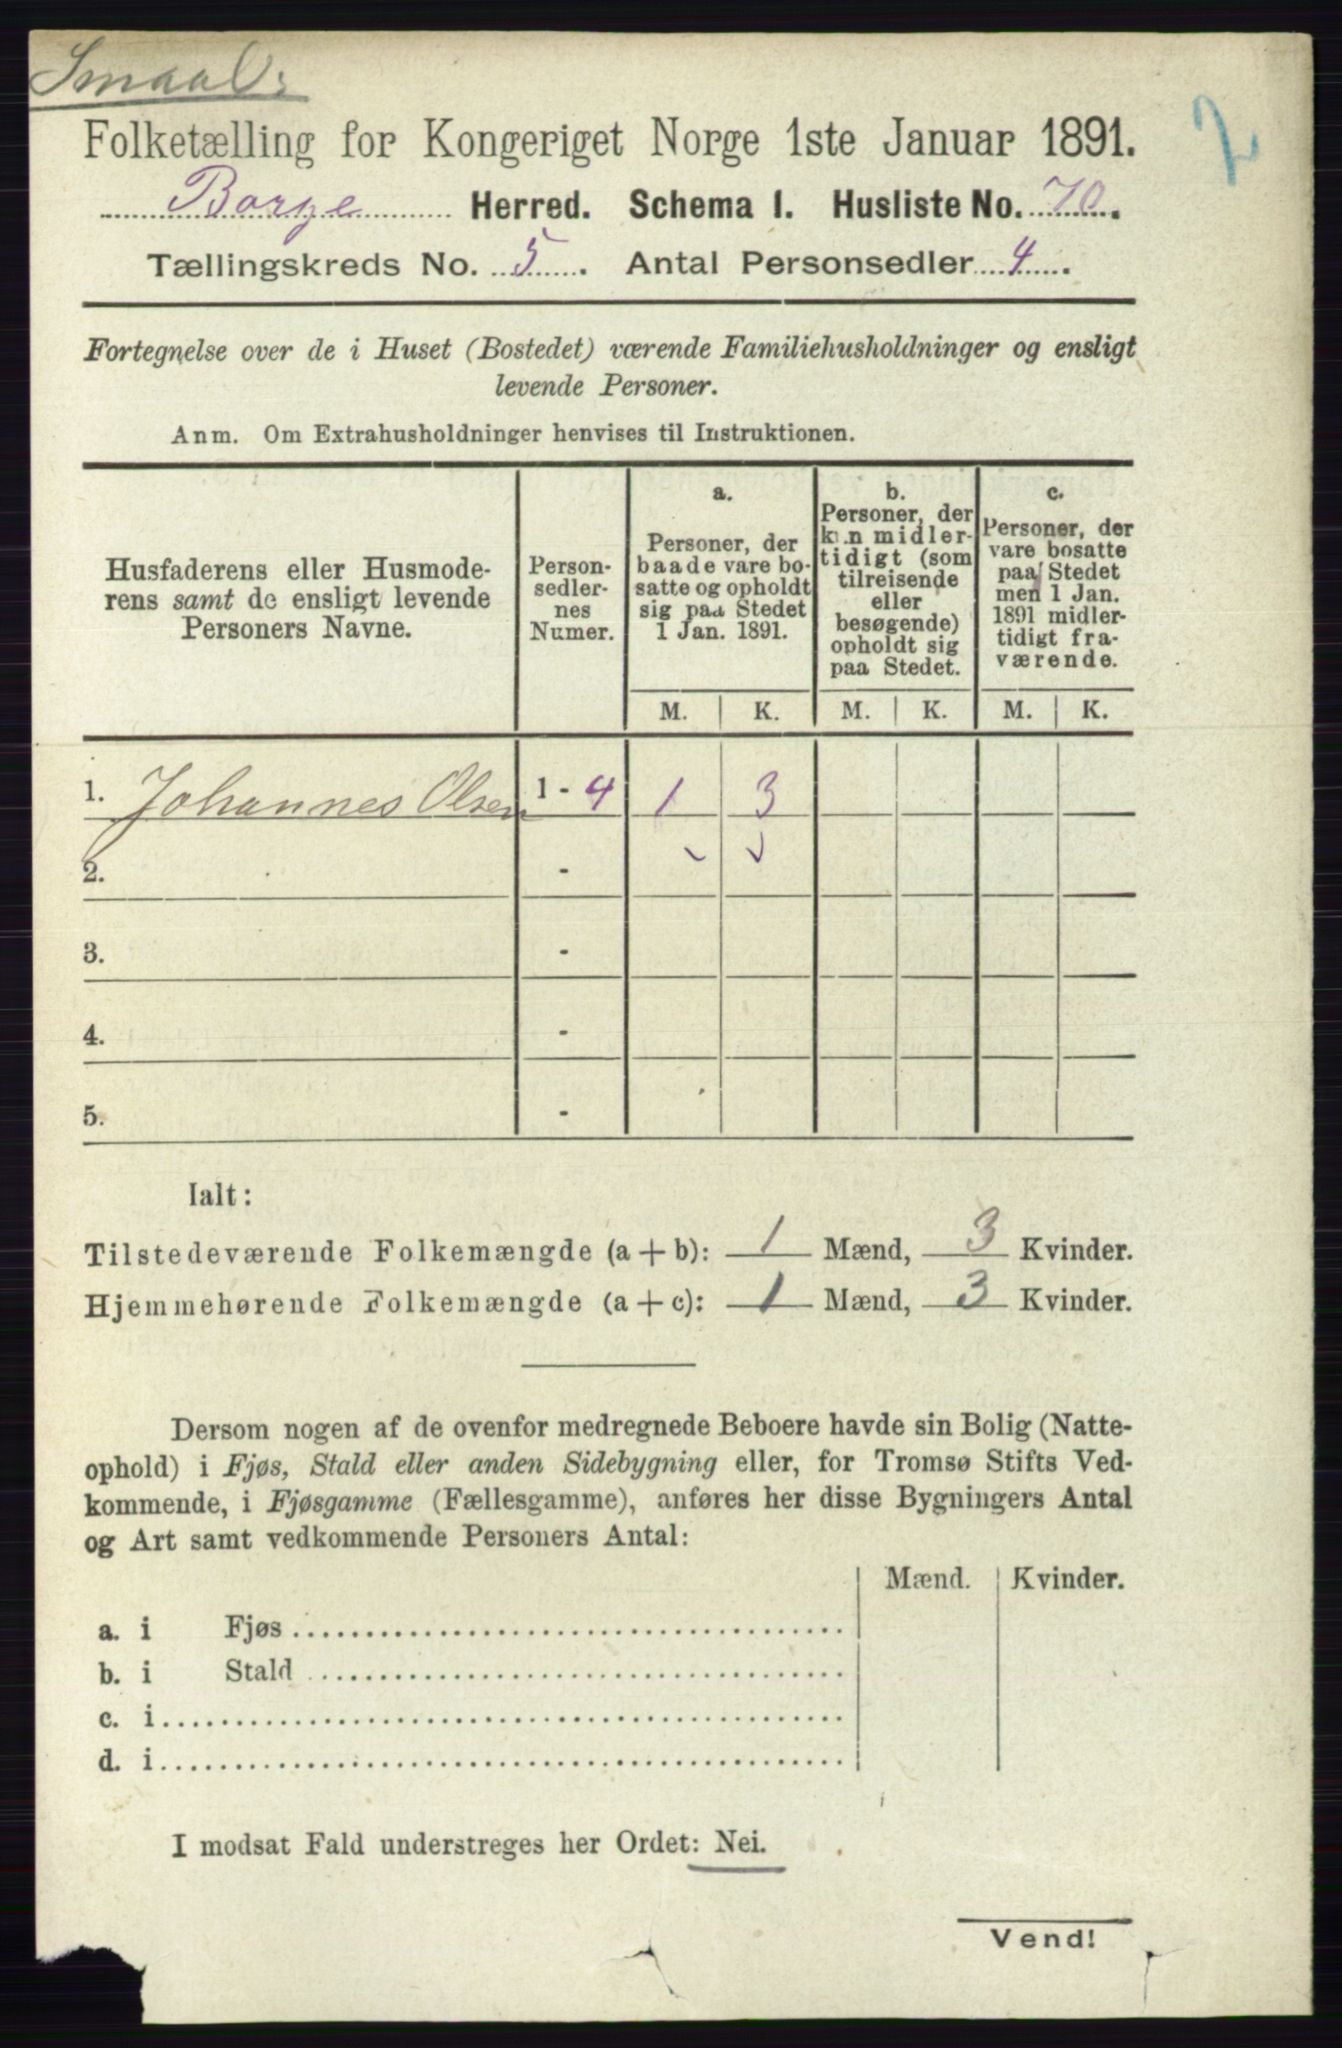 Smaal:
Folketælling for Kongeriget Norge 1ste Januar 1891.
Borge Herred. Schema I. Husliste No. 70.
Tællingskreds No. 5. Antal Personsedler 4.
Fortegnelse over de i Huset (Bostedet) værende Familiehusholdninger og ensligt
levende Personer.
Anm. Om Extrahusholdninger henvises til Instruktionen.
Husfaderens eller Husmode-
rens samt de ensligt levende
Personers Navne.
Person-
sedler-
nes
Numer.
a.
Personer, der
baade vare bo-
satte og opholdt
sig paa Stedet
1 Jan. 1891.
b.
Personer, der
kun midler-
tidigt (som
tilreisende
eller
besøgende)
opholdt sig
paa Stedet.
c.
Personer, der
vare bosatte
paa Stedet
men 1 Jan.
1891 midler-
tidigt fra-
værende.
M. K. M. K. M. K.
1. Johannes Olsen 1 - 4 1 3
2. -
3. -
4. -
5. -
Ialt:
Tilstedeværende Folkemængde (a + b): 1 Mænd, 3 Kvinder.
Hjemmehørende Folkemængde (a + c): 1 Mænd, 3 Kvinder.
Dersom nogen af de ovenfor medregnede Beboere havde sin Bolig (Natte-
ophold) i Fjøs, Stald eller anden Sidebygning eller, for Tromsø Stifts Ved-
kommende, i Fjøsgamme (Fællesgamme), anføres her disse Bygningers Antal
og Art samt vedkommende Personers Antal:
Mænd. Kvinder.
a. i Fjøs
b. i Stald
c. i
d. i
I modsat Fald understreges her Ordet: Nei.
Vend!